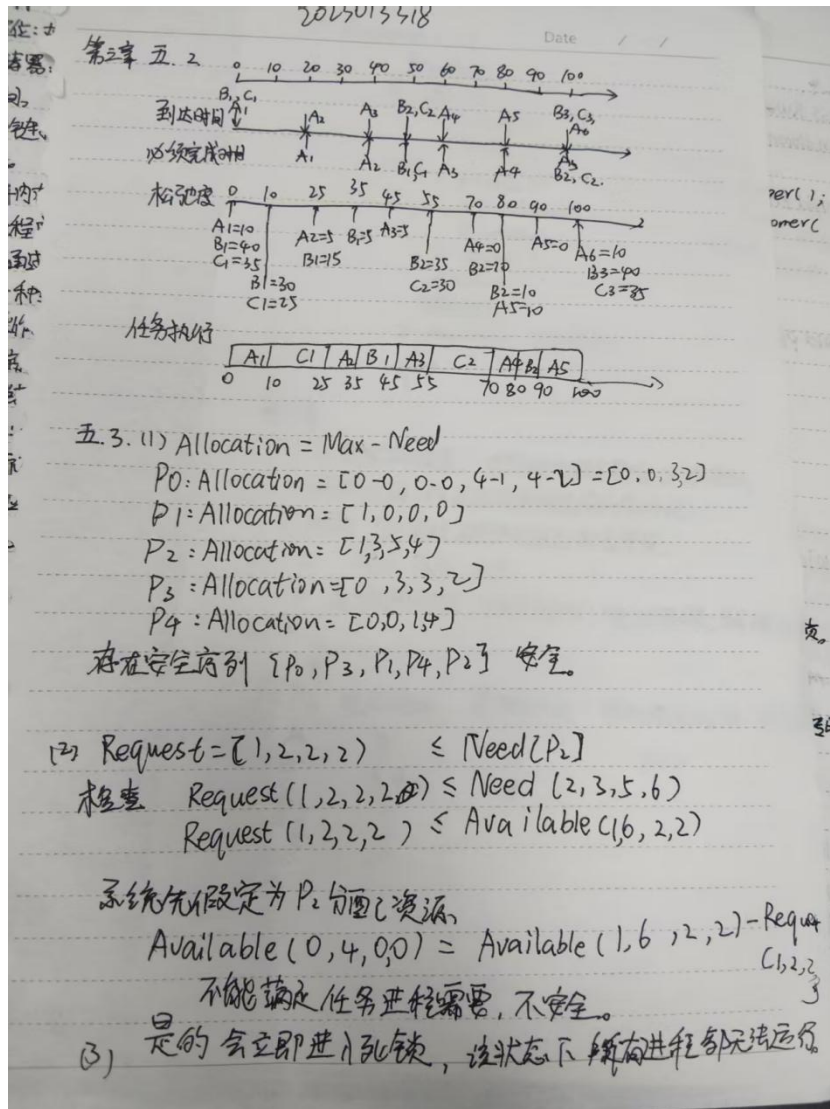 2023013318
Date / /
第三章 五.2
0 10 20 30 40 50 60 70 80 90 100
B1,C1 A1 A2 A3 B2,C2 A4 A5 B3,C3, A6
到达时间
必须完成时间
A1 A2 B1,C1 A3 A4 A5 B2,C2.
松弛度 0 10 25 35 45 55 70 80 90 100
A1=10 A2=5 B1=5 A3=5 A4=0 A5=0 A6=10
B1=40 B1=15 B2=35 B2=20 B3=40
C1=35 C2=30 C3=35
B1=30 B2=10
C1=25 A5=10
任务执行
A1 C1 A2 B1 A3 C2 A4 B2 A5
0 10 25 35 45 55 70 80 90 100
五.3.(1) Allocation = Max-Need
P0: Allocation = [0-0, 0-0, 4-1, 4-2] = [0,0,3,2]
P1: Allocation = [1,0,0,0]
P2: Allocation = [1,3,5,4]
P3: Allocation=[0,3,3,2]
P4: Allocation = [0,0,1,4]
存在安全序列 {P0,P3,P1,P4,P2} 安全。
(2) Request=[1,2,2,2) ≤ Need[P2]
检查 Request(1,2,2,2) ≤ Need (2,3,5,6)
Request (1,2,2,2) ≤ Available(1,6,2,2)
系统先假定为P2分配资源,
Available(0,4,0,0) = Available(1,6,2,2)-Request
(1,2,2,
不能满足任务进程需要,不安全。
(3) 是的 会立即进入死锁, 该状态下 所有进程都无法运行。